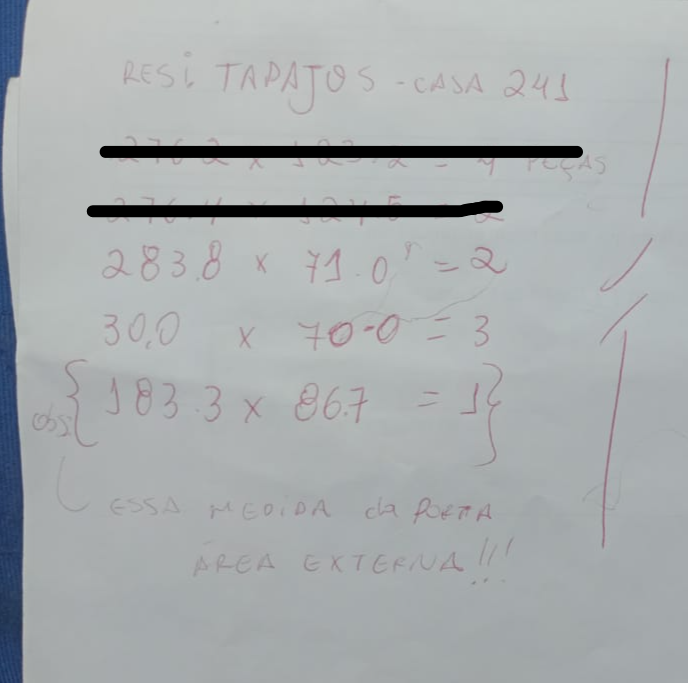 RESI TAPAJOS - CASA 241
PEÇAS
283.8 x 71.0 = 2
30,0 x 70-0 = 3
obs: { 183.3 x 86.7 = 1 }
ESSA MEDIDA da PORTA
ÁREA EXTERNA!!!